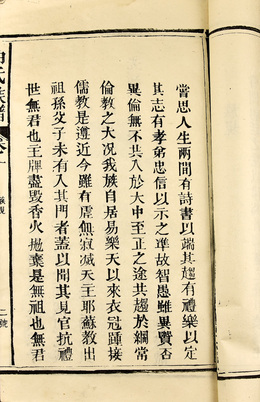 嘗思人生兩間有詩書以端其趨有禮樂以定
其志有孝弟忠信以示之準故智愚雖異賢否
異倫無不共入於大中至正之途共趨於綱常
倫教之大况我族自居易樂天以來衣冠踵接
儒教是遵近今雖有虛無寂滅天主耶蘇教出
祖孫父子未有入其門者蓋以聞其見官抗禮
世無君也主牌盡毀香火拋棄是無祖也無君
氏族譜
卷一
二號